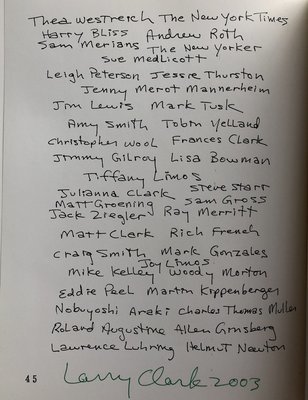 Thea Westreich The New York Times
Harry Bliss Andrew Roth
Sam Merians The New Yorker
Sue Medlicott
Leigh Peterson Jessie Thurston
Jenny Merot Mannerheim
Jim Lewis Mark Tusk
Amy Smith Tobin Yelland
Christopher Wool Frances Clark
Jimmy Gilroy Lisa Bowman
Tiffany Limos
Julianna Clark Steve Starr
Matt Groening Sam Gross
Jack Ziegler Ray Merritt
Matt Clark Rich French
Craig Smith Mark Gonzales
Joy Limos
Mike Kelley Woody Morton
Eddie Peel Martin Kippenberger
Nobuyoshi Araki Charles Thomas Muller
Roland Augustine Allen Ginsberg
Lawrence Luhring Helmut Newton
45
Larry Clark 2003